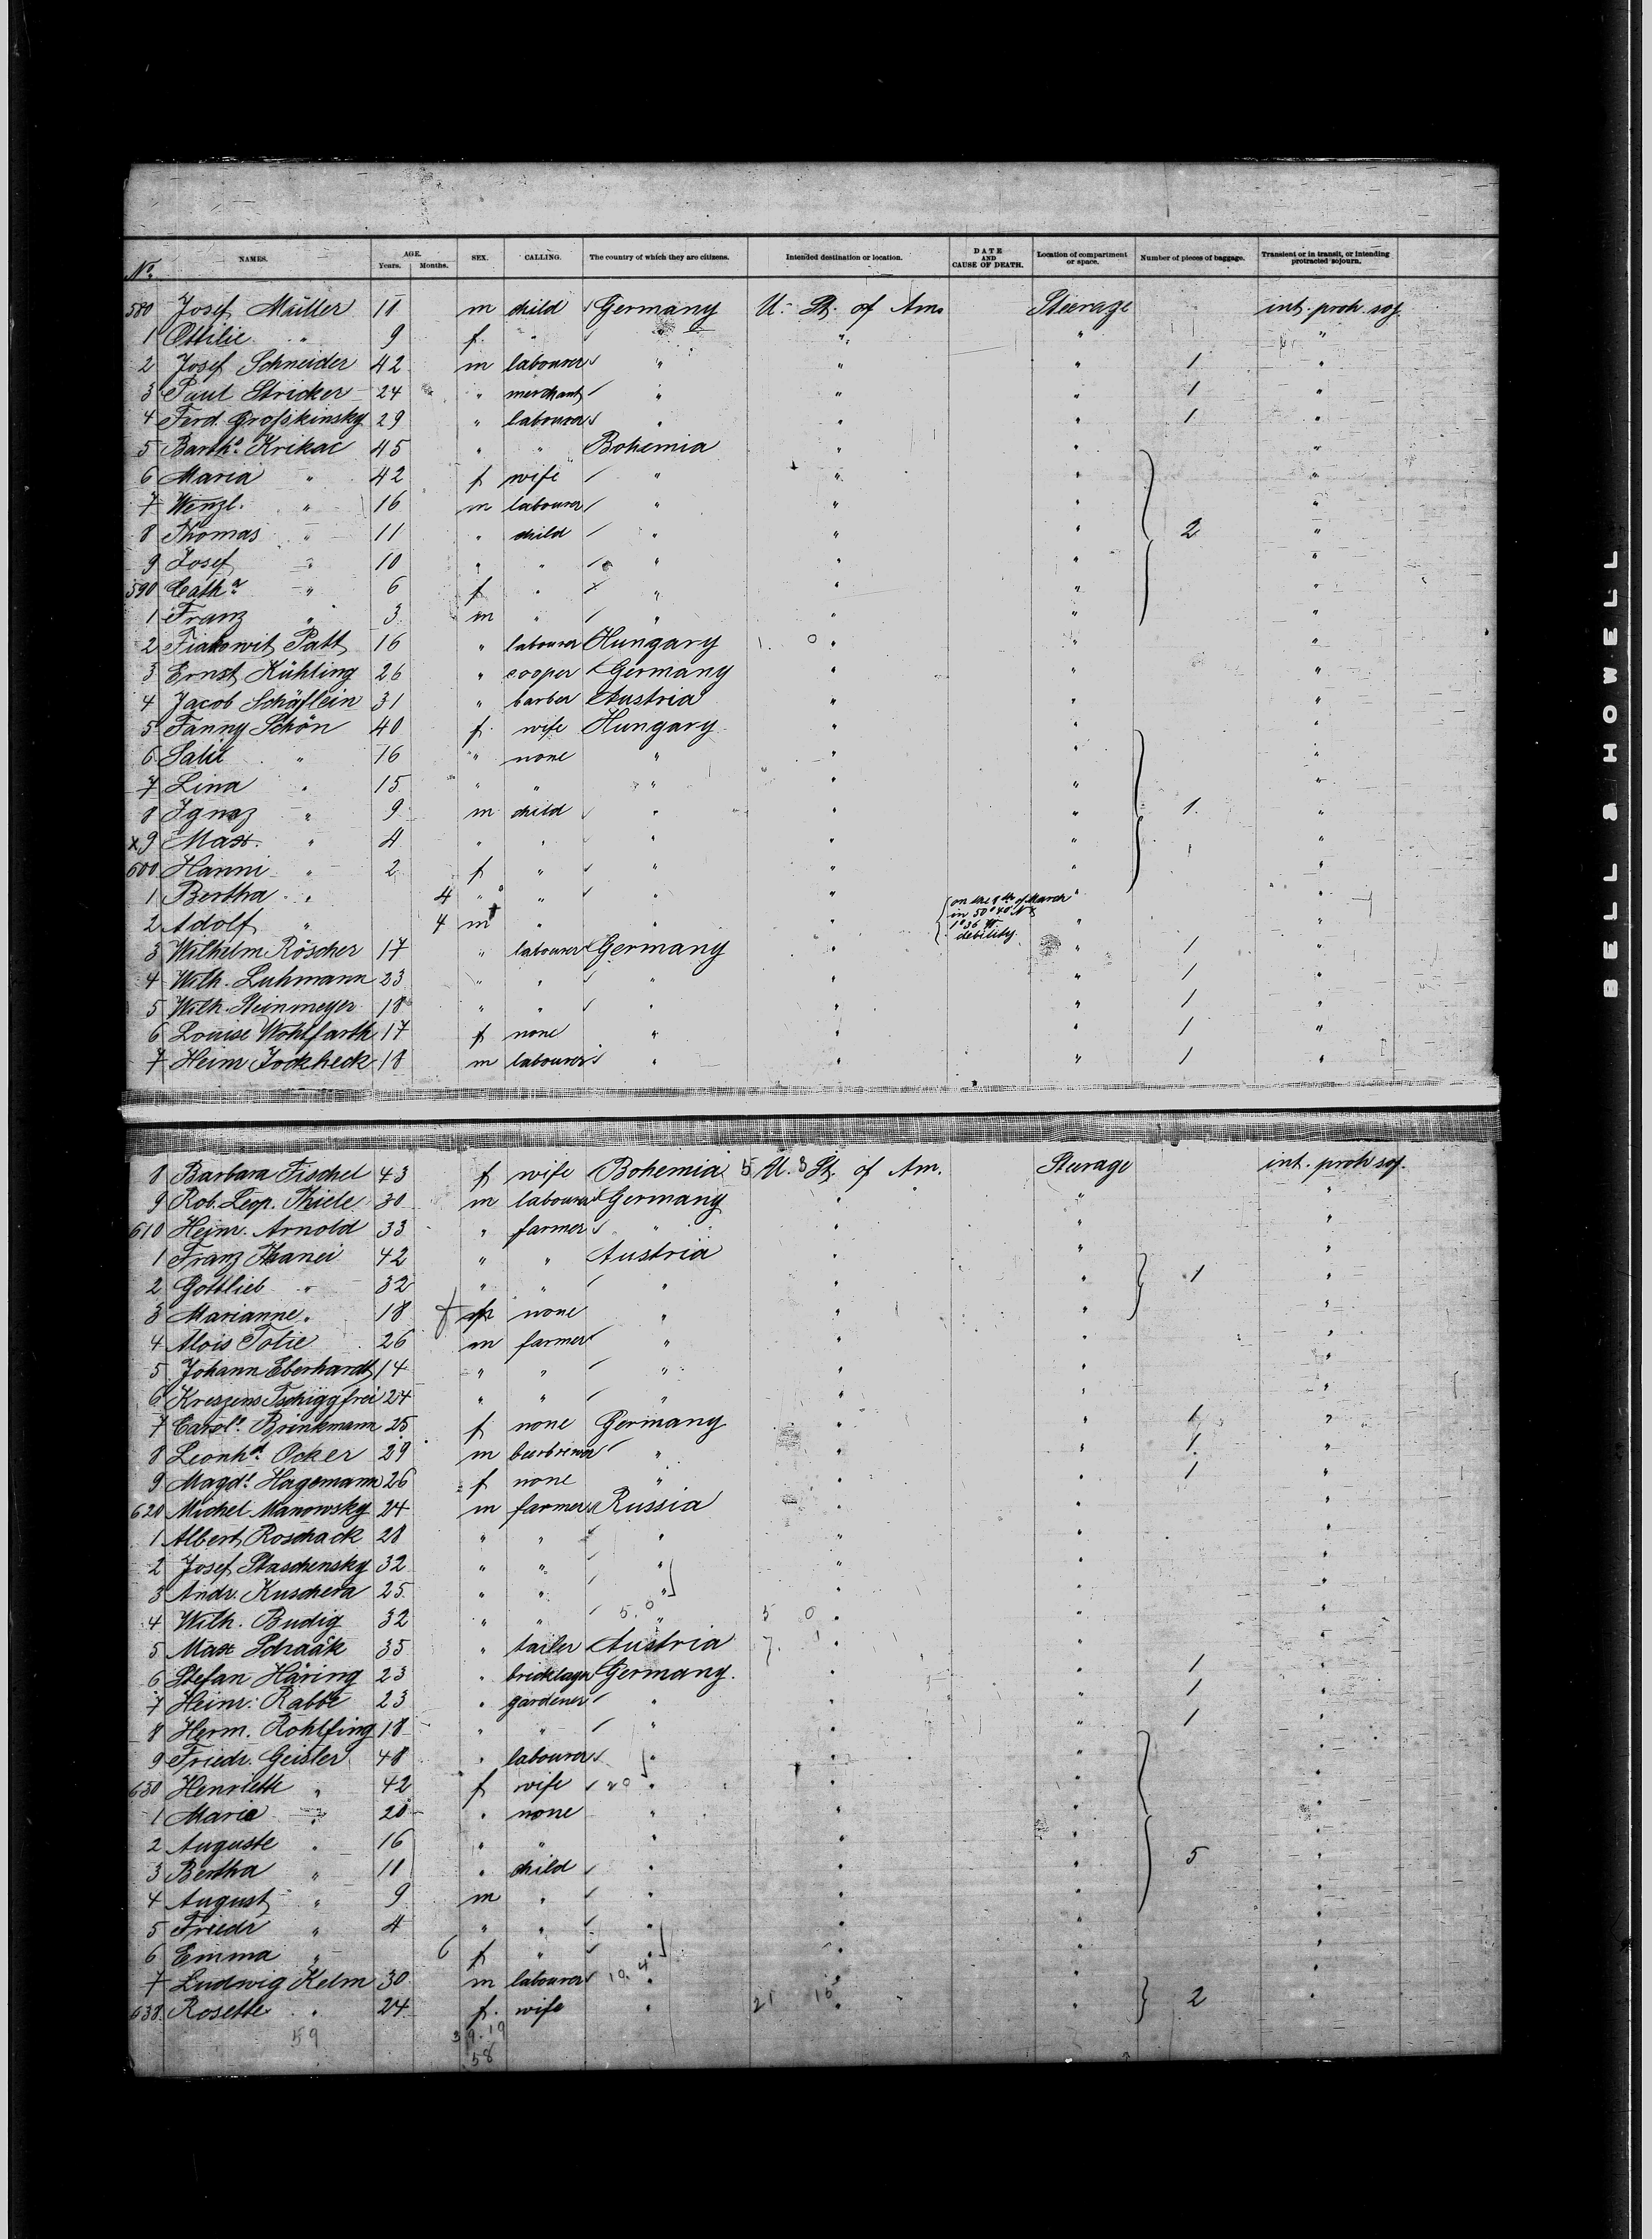 No. NAMES. AGE. Years. Months. SEX. CALLING. The country of which they are citizens. Intended destination or location. DATE AND CAUSE OF DEATH. Location of compartment or space. Number of pieces of baggage. Transient or in transit, or intending protracted sojourn.
580 Josef Müller 11 m child Germany U. St. of Am. Steerage int. protr. soj.
1 Ottilie " 9 f. " " " " "
2 Josef Schneider 42 m labourer " " " 1 "
3 Paul Stricker 24 " merchant " " " 1 "
4 Ferd. Großkinsky 29 " labourer " " " 1 "
5 Barth. Krikac 45 " " Bohemia " " "
6 Maria " 42 f wife " " " "
7 Wenzl. " 16 m labourer " " " "
8 Thomas " 11 " child " " " 2 "
9 Josef " 10 " " " " " "
590 Catha " 6 f " " " " "
1 Franz " 3 m " " " " "
2 Patt 16 " labourer Hungary " " "
3 Ernst Kühling 26 " cooper Germany " " "
4 Jacob Schäflein 31 " barber Austria " " "
5 Fanny Schön 40 f. wife Hungary " " "
6 " 16 " none " " " "
7 Lina " 15 " " " " " "
8 Ignaz " 9 m child " " " 1. "
x9 Max. " 4 " " " " " "
600 Hanni " 2 f " " " " "
1 Bertha " 4 " " " " " "
2 Adolf " 4 m † " " " on the 9th of March in 50°40 N & 1°36 W debility. " "
3 Wilhelm Röscher 17 " labourer Germany " " 1 "
4 Wilh. Luhmann 23 " " " " " 1 "
5 Wilh. Steinmeyer 18 " " " " " 1 "
6 Louise Wohlfarth 17 f none " " " 1 "
7 Heinr Jockheck 18 m labourer " " " 1 "
8 Barbara Fischel 43 f wife Bohemia U. St. of Am. Steerage int. protr. soj.
9 Rob. Leop. Thiele 30 m labourer Germany " " "
610 Heinr. Arnold 33 " farmer " " " "
1 Franz 42 " " Austria " " "
2 Gottlieb " 32 " " " " " 1 "
3 Marianne " 18 f none " " " "
4 Alois 26 m farmer " " " "
5 Johann Eberhardt 14 " " " " " "
6 Kreszens Tschiggfrei 24 " " " " " "
7 Carol. Brinkmann 25 f none Germany " " 1 "
8 Leonhd. Ocker 29 m beerbrewer " " " 1. "
9 Magd. Hagemann 26 f none " " " 1 "
620 Michel Manowsky 24 m farmer Russia " " "
1 Albert Roschack 28 " " " " " "
2 Josef Staschensky 32 " " " " " "
3 Andr. Kuschera 25 " " " " " "
4 Wilh. Budig 32 " " 5.0 " 5 0 " " "
5 Max Schaäk 35 " tailer Austria " " "
6 Stefan Häring 23 " bricklayer Germany. " " 1 "
7 Heinr. Rabbe 23 " gardener " " " 1 "
8 Herm. Rohlfing 18 " " " " " 1 "
9 Friedr. Geisler 48 " labourer " " " "
630 Henriette " 42 f wife " " " "
1 Maria " 20 " none " " " "
2 Auguste " 16 " " " " " "
3 Bertha " 11 " child " " " 5 "
4 August " 9 m " " " " "
5 Friedr " 4 " " " " " "
6 Emma " 6 f " " " " "
7 Ludwig Kelm 30 m labourer 10.4 " " " "
638. Rosette " 24 f. wife " 21 15 " " 2 "
59 39.19
58
BELL & HOWELL